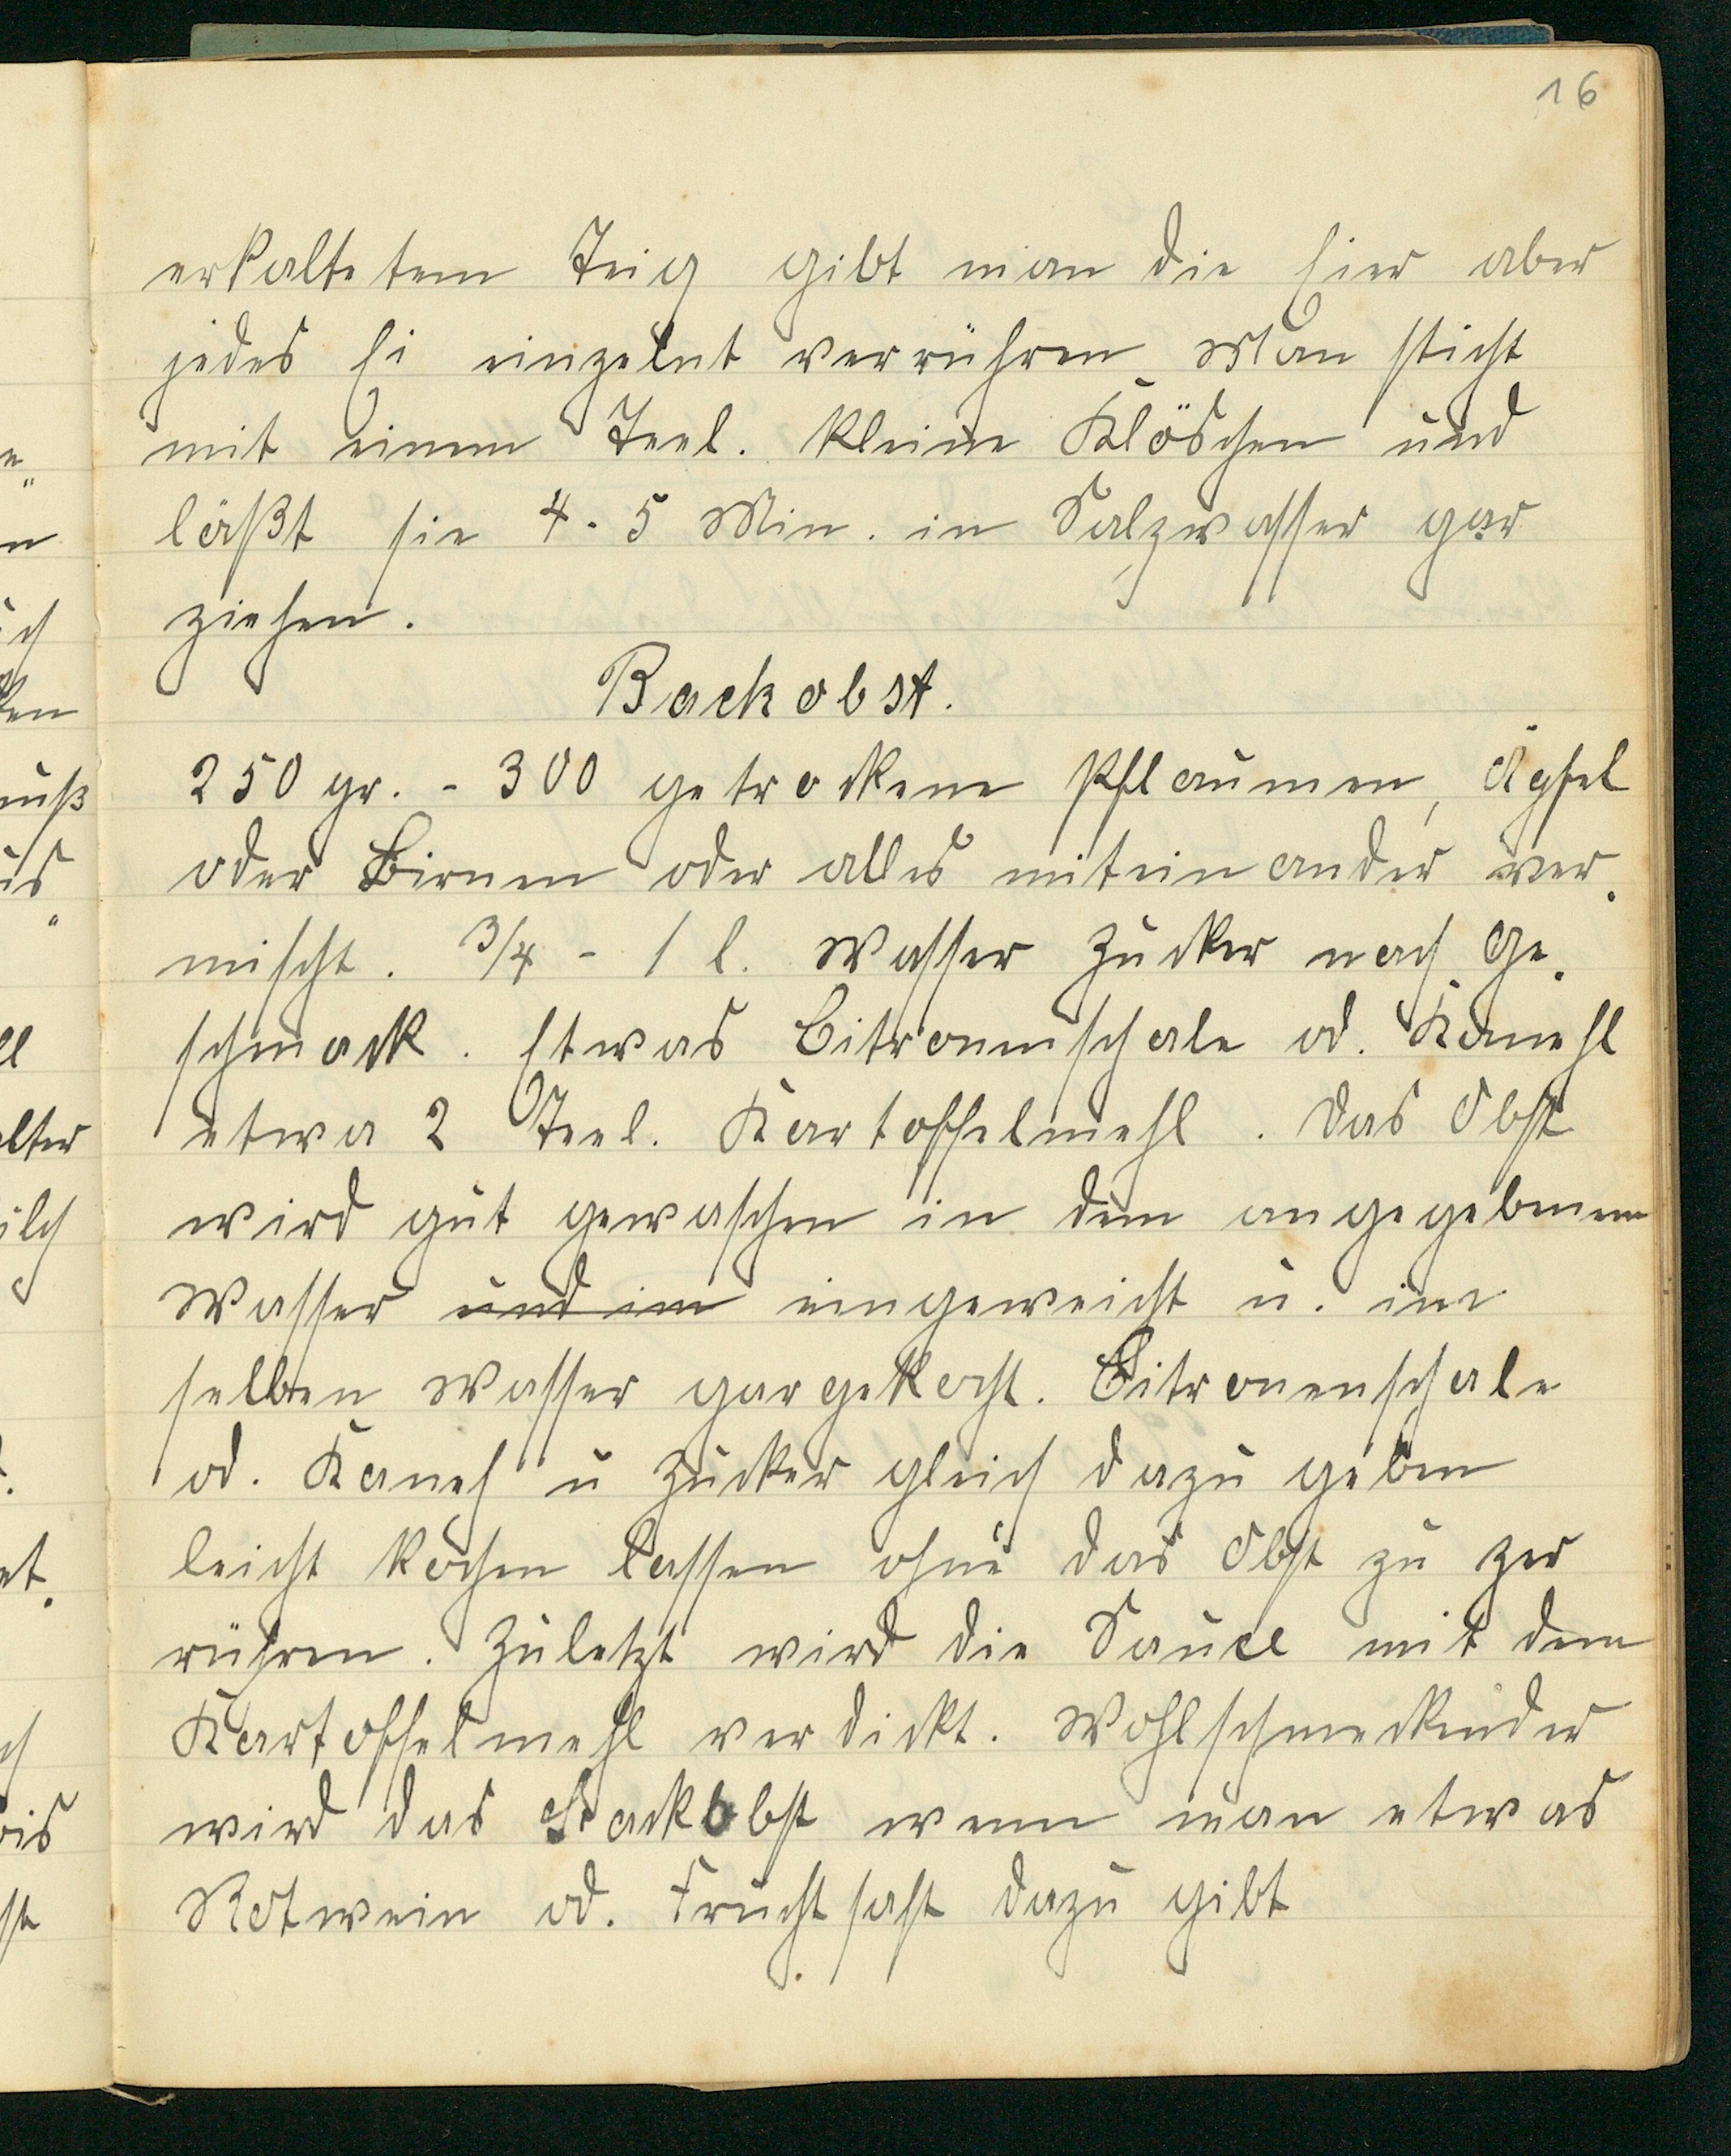 16
erkaltetem Teig gibt man die Eier aber
jedes Ei einzelnt verrühren. Man sticht
mit einem Teel. kleine Klöschen und
läßt sie 4-5 Min. in Salzwasser gar
ziehen.
Backobst.
250 gr. - 300 getrockene Pflaumen, Äpfel
oder Birnen oder alles miteinander ver-
mischt. 3/4 - 1 l. Wasser Zucker nach Ge-
schmack. Etwas Citronenschale od. Kanehl
etwa 2 Teel. Kartoffelmehl. Das Obst
wird gut gewaschen in dem angegebenem
Wasser und im eingeweicht u. im
selben Wasser gargekocht. Citronenschale
od. Kaneh u Zucker gleich dazu geben
leicht kochen lassen ohne das Obst zu zer
rühren. Zuletzt wird die Sauce mit dem
Kartoffelmehl verdickt. Wohlschmeckender
wird das Backobst wenn man etwas
Rotwein od. Fruchtsaft dazu gibt